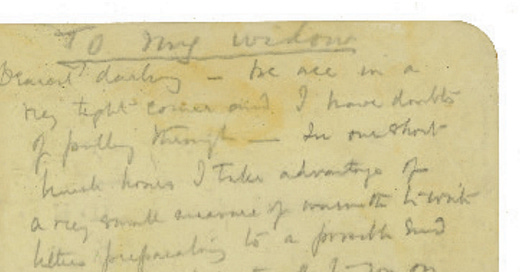 To my widow
Dearest darling – we are in a
very tight corner and I have doubts
of pulling through – In our short
lunch hours I take advantage of
a very small measure of warmth to write
letters preparatory to a possible end